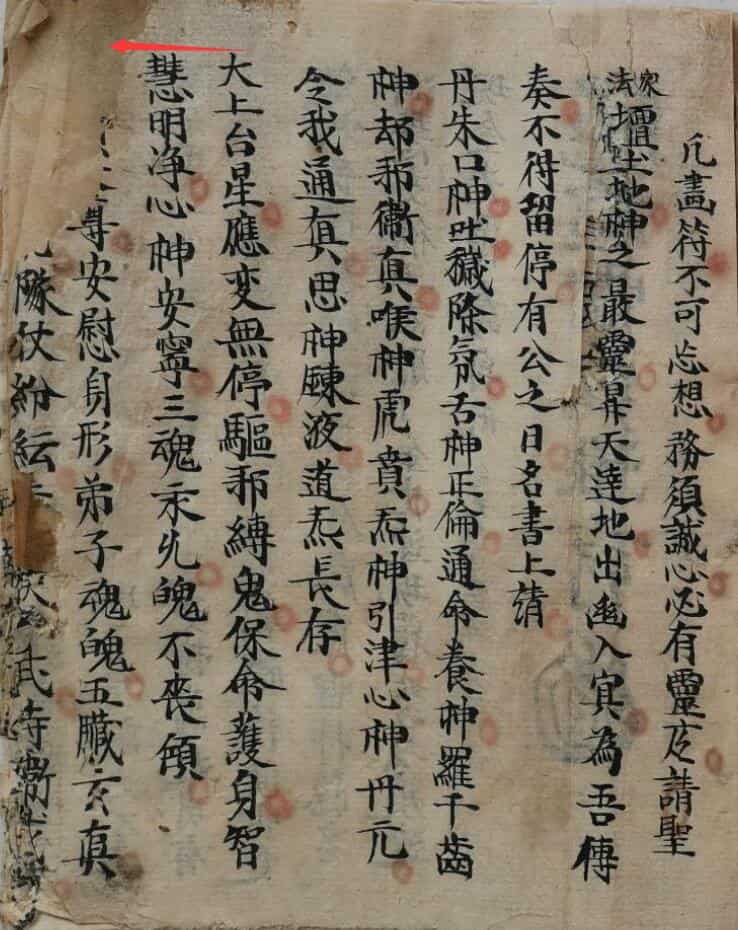 凡畫符不可忘想務須誠心必有靈應請聖
家法壇土地神之最靈昇天達地出幽入冥為吾傳
奏不得留停有公之日名書上請
丹朱口神吐穢除氛舌神正倫通命養神羅千齒
神却邪衛真喉神虎賁炁神引津心神丹元
令我通真思神鍊液道炁長存
大上台星應变無停驅邪縛鬼保命護身智
慧明净心神安寧三魂永久魄不丧傾
尊安慰身形弟子魂魄五臟玄真
隊仗紛紜
武侍衛